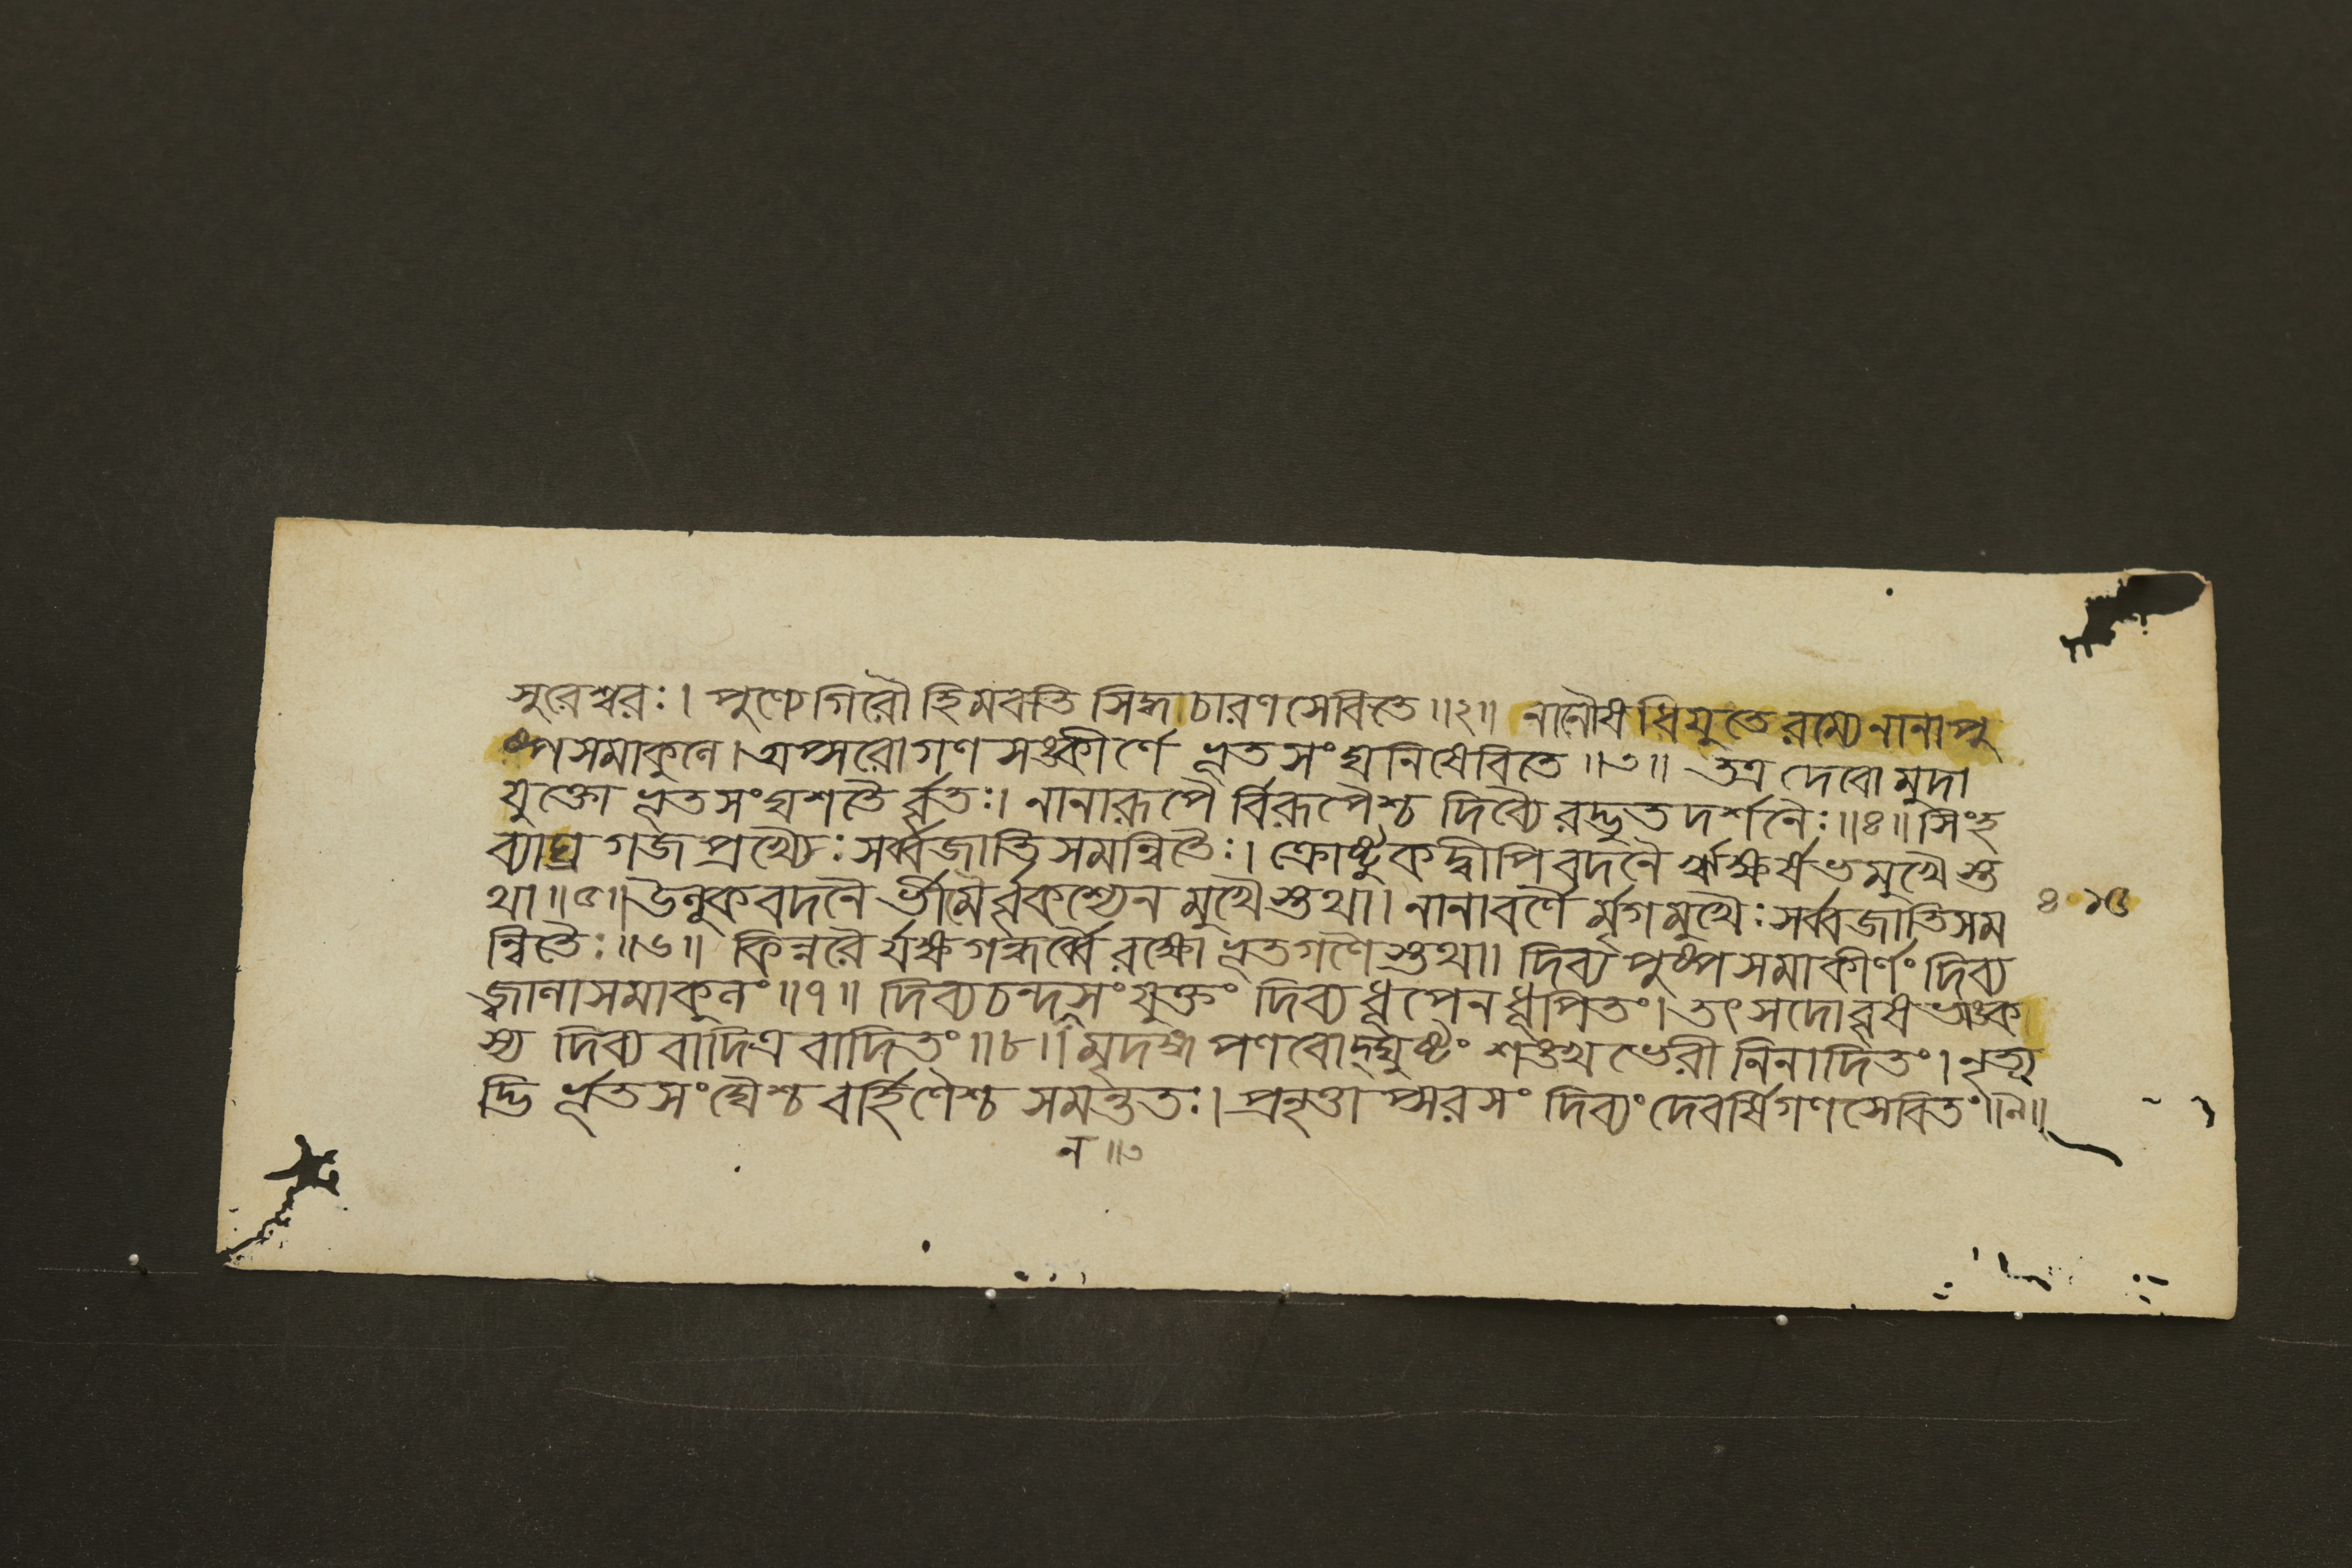 সুরেশ্বরঃ। পুণ্যে গিরৌ হিমবতি সিদ্ধচারণসেবিতে॥২॥ নানৌষধিযুতে রম্যে নানাপু
ষ্পসমাকুলে। অপ্সরোগণসঙ্কীর্ণে ভূতসংঘনিষেবিতে॥৩॥ তত্র দেবো মুদা
যুক্তো ভূতসংঘশতৈর্ব্বৃতঃ। নানারূপৈর্বিরূপৈশ্চ দিব্যৈরদ্ভুতদর্শনৈঃ॥৪॥ সিংহ
ব্যাঘ্রগজপ্রখ্যৈঃ সর্ব্বজাতিসমন্বিতৈঃ। ক্রোষ্টুকদ্বীপিবদনৈর্ঋক্ষর্ষভমুখৈস্ত
থা॥৫॥ উলূকবদনৈর্ভীমৈর্ব্বৃকশ্যেনমুখৈস্তথা। নানাবর্ণৈর্মৃগমুখৈঃ সর্ব্বজাতিসম
ন্বিতৈঃ॥৬॥ কিন্নরৈর্যক্ষগন্ধর্ব্বৈ রক্ষোভূতগণৈস্তথা। দিব্যপুষ্পসমাকীর্ণং দিব্য
জ্বালাসমাকুলং॥৭॥ দিব্যচন্দসংযুক্তং দিব্যধূপেন ধূপিতং। তৎসদো বৃষভাঙ্ক
স্য দিব্যবাদিত্রবাদিতং॥৮॥ মৃদঙ্গপণবোদ্ঘুষ্টং শঙ্খভেরীনিনাদিতং। নৃত্য
দ্ভির্ভূতসংঘৈশ্চ বর্হিণৈশ্চ সমন্ততঃ। প্রনৃত্তাপ্সরসং দিব্যং দেবর্ষিগণসেবিতং॥৯॥
ন॥৩